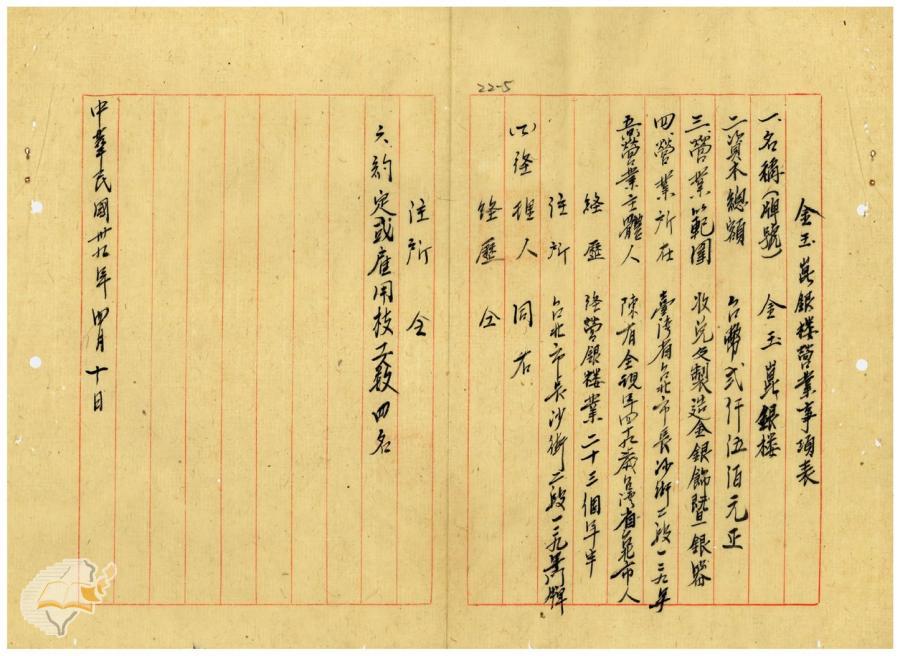 22-5
金玉崑銀楼營業事項表
一、名稱(牌號) 金玉崑銀楼
二、資本總額 台幣弍仟伍佰元正
三、營業範圍 收兌及製造金銀飾暨銀器
四、營業所在 臺湾省台北市長沙街二段一三九号
五、營業主體人 陳有全現年四十九歲台湾省台北市人
経歷 経營銀楼業二十三個年半
住所 台北市長沙街二段一三九号門牌
経理人 同右
経歷 仝
住所 仝
六、約定或雇用技工数四名
中華民國卅九年四月十日